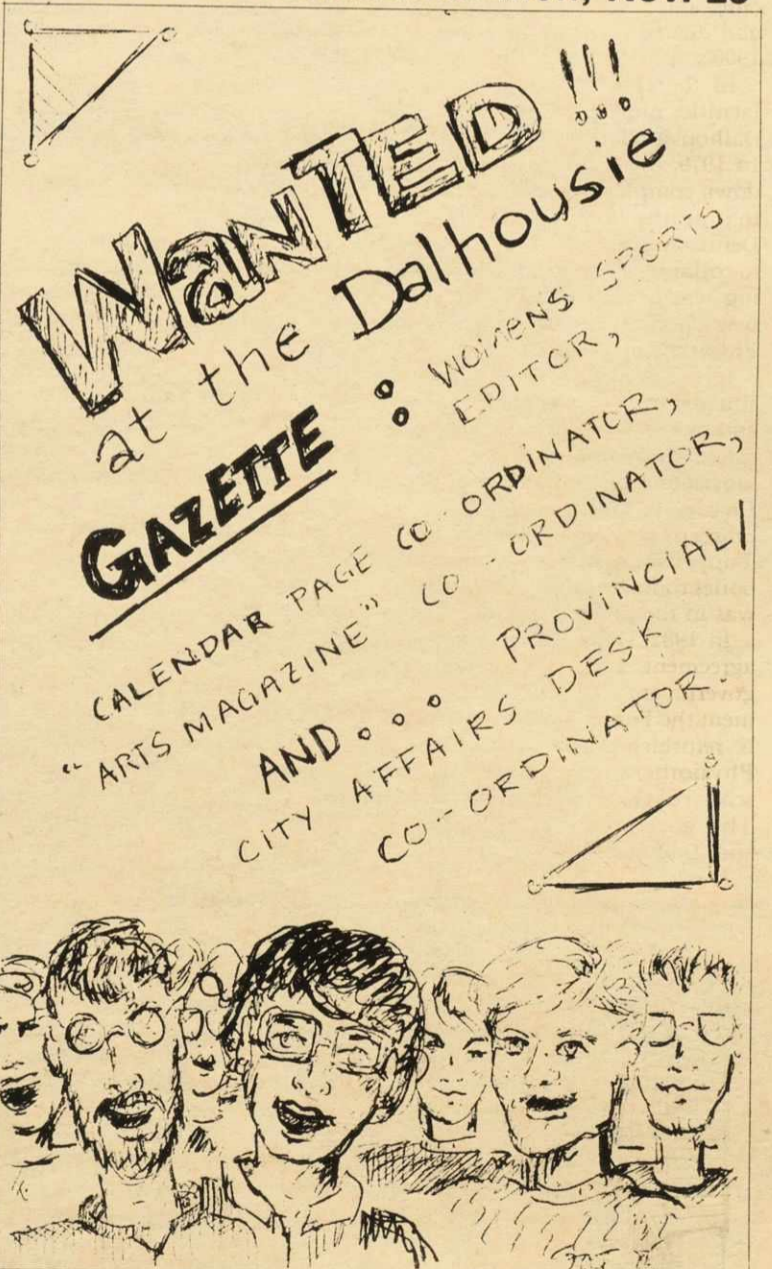 , NOV. 23
WANTED!!!
at the Dalhousie
GAZETTE : WOMENS SPORTS
EDITOR,
CALENDAR PAGE CO-ORDINATOR,
"ARTS MAGAZINE" CO-ORDINATOR,
AND... PROVINCIAL/
CITY AFFAIRS DESK
CO-ORDINATOR.